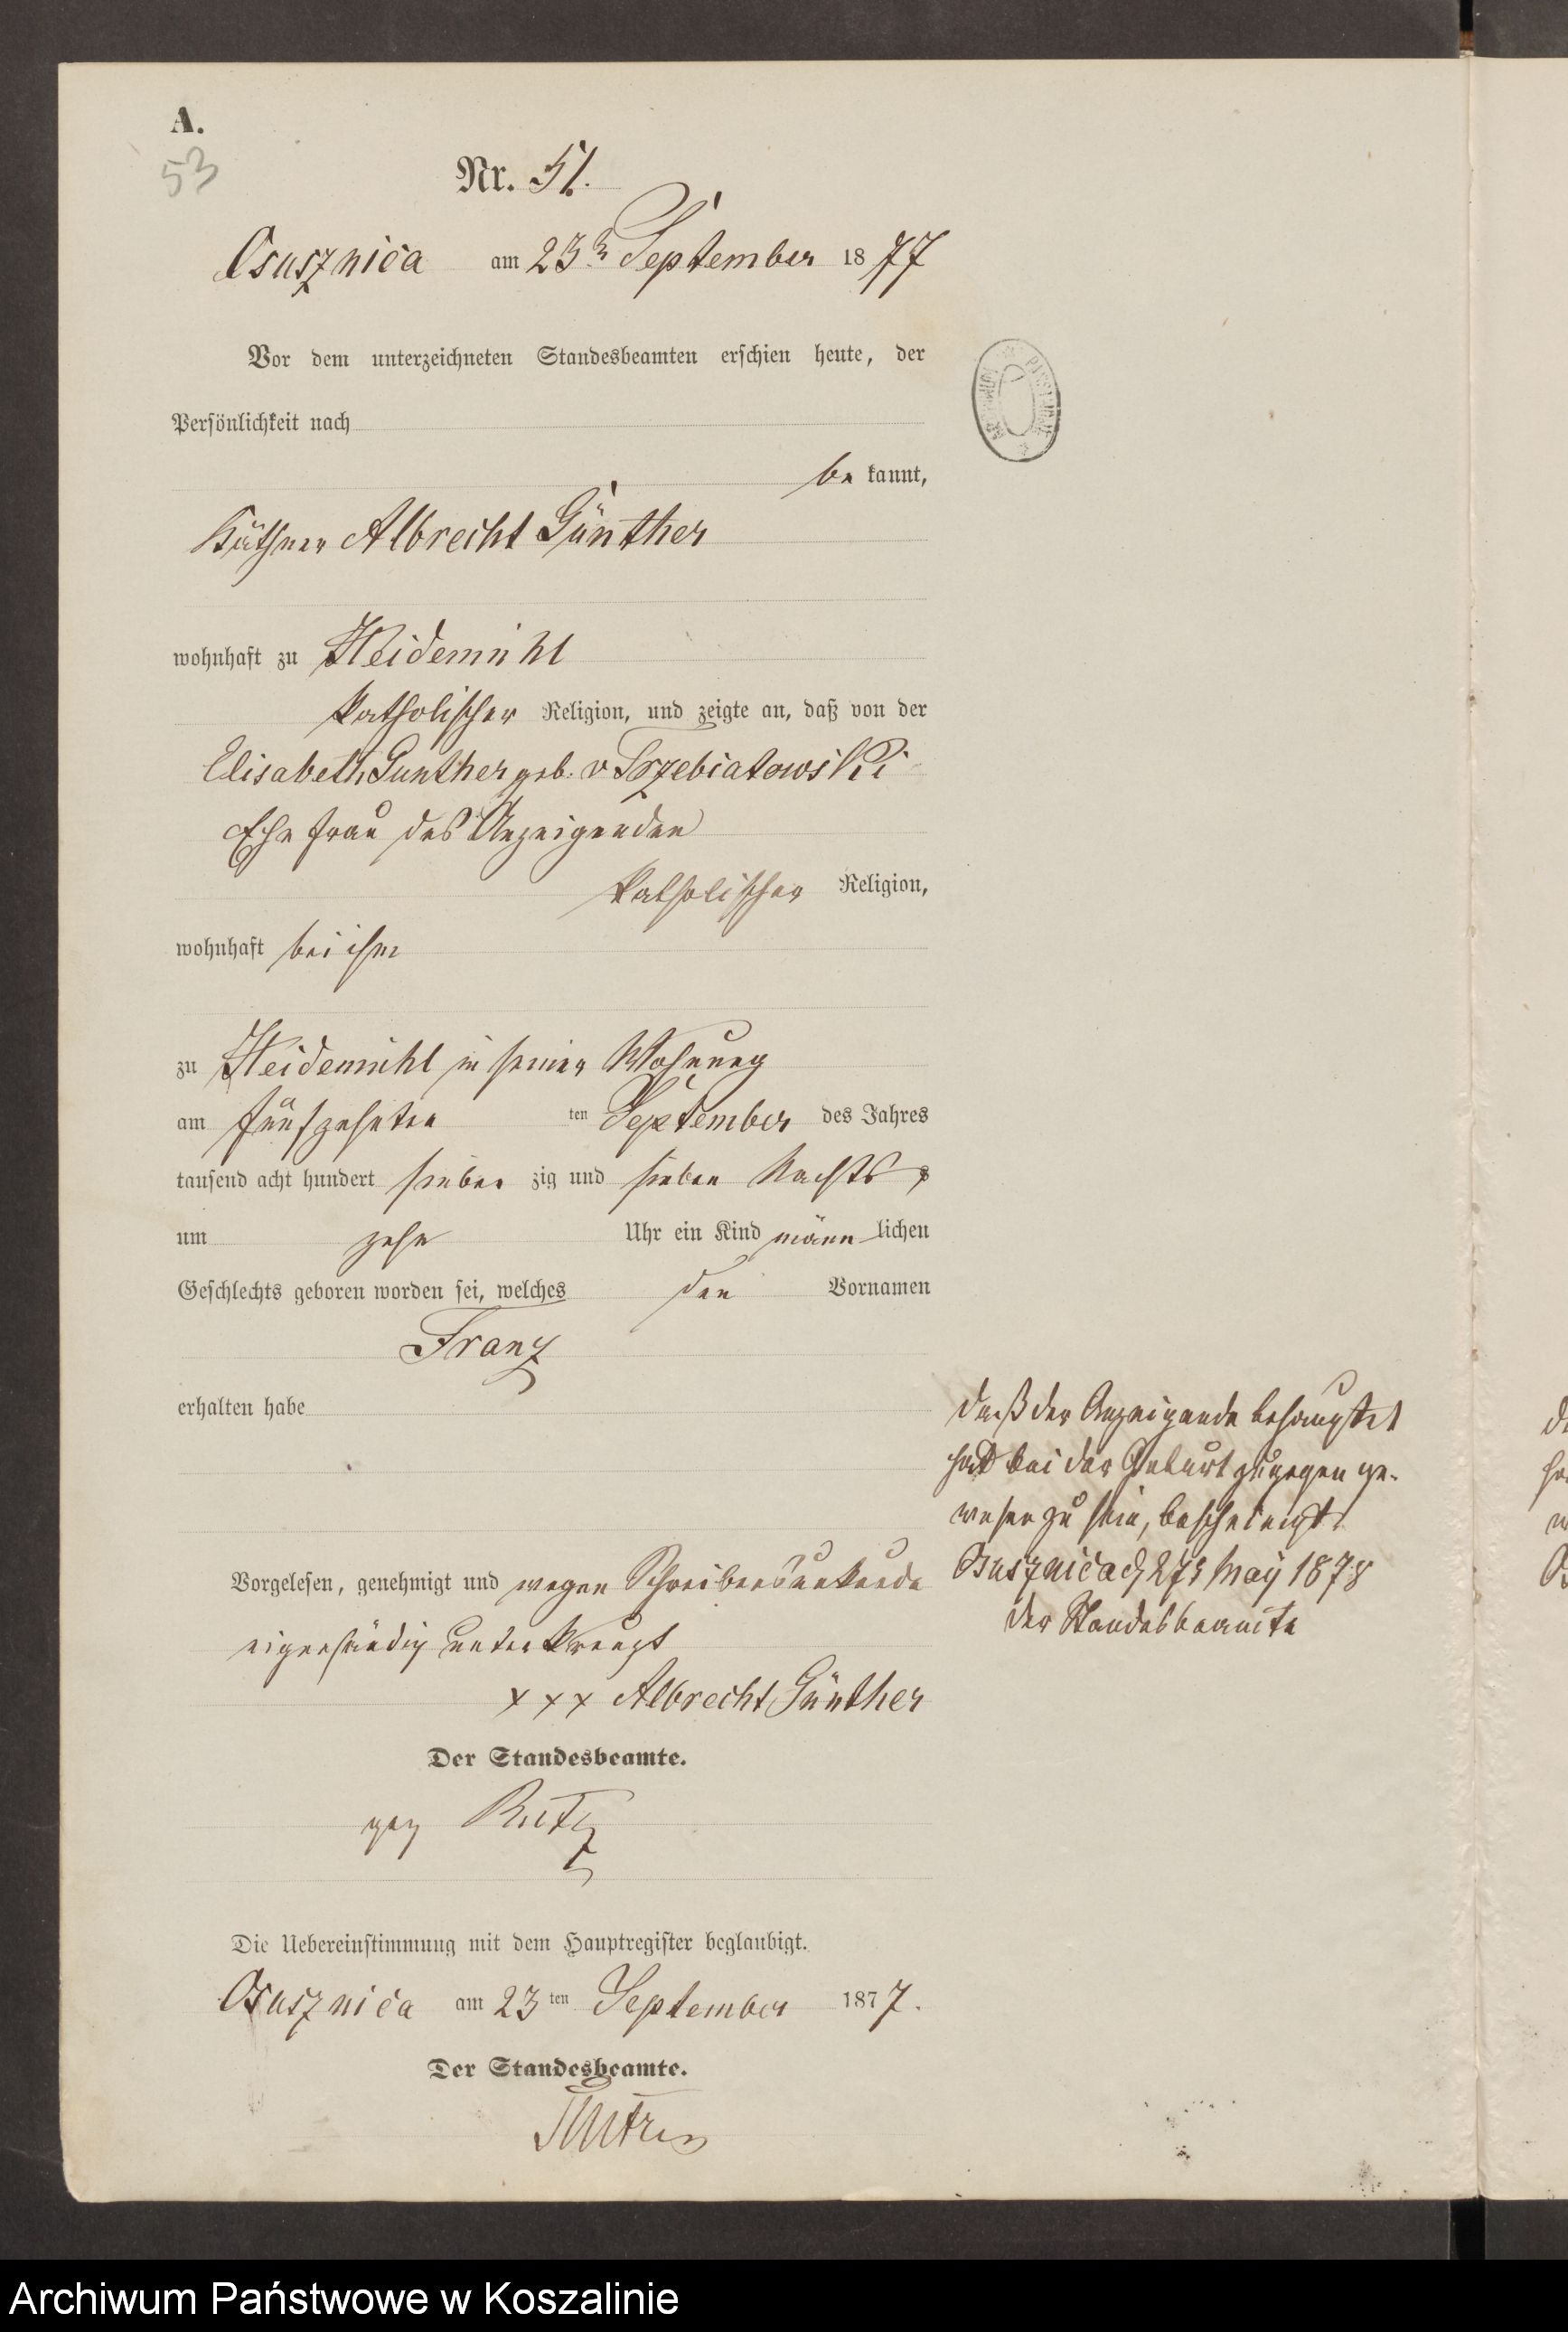 A.
53
Nr. 51.
Osusznica am 23 September 1877
Vor dem unterzeichneten Standesbeamten erschien heute, der
Persönlichkeit nach
be kannt,
Käthner Albrecht Günther
wohnhaft zu Heidemühl
katholischer Religion, und zeigte an, daß von der
Elisabeth Gunther geb. v Trzebiatowski
Ehefrau des Anzeigenden
katholischer Religion,
wohnhaft bei ihm
zu Heidemühl in seiner Wohnung
am fünfzehnten ten September des Jahres
tausend acht hundert sieben zig und sieben Nachts
um zehn Uhr ein Kind männ lichen
Geschlechts geboren worden sei, welches den Vornamen
Franz
erhalten habe
daß der Anzeigende behauptet
hat bei der Geburt zugegen ge-
wesen zu sein, bescheinigt
Osusznica d 27 May 1878
der Standesbeamte
Vorgelesen, genehmigt und wegen Schreibensunkunde
eigenhändig unterkreuzt
+ + + Albrecht Günther
Der Standesbeamte.
gez
Die Uebereinstimmung mit dem Hauptregister beglaubigt.
Osusznica am 23 ten September 1877.
Der Standesbeamte.
Archiwum Państwowe w Koszalinie